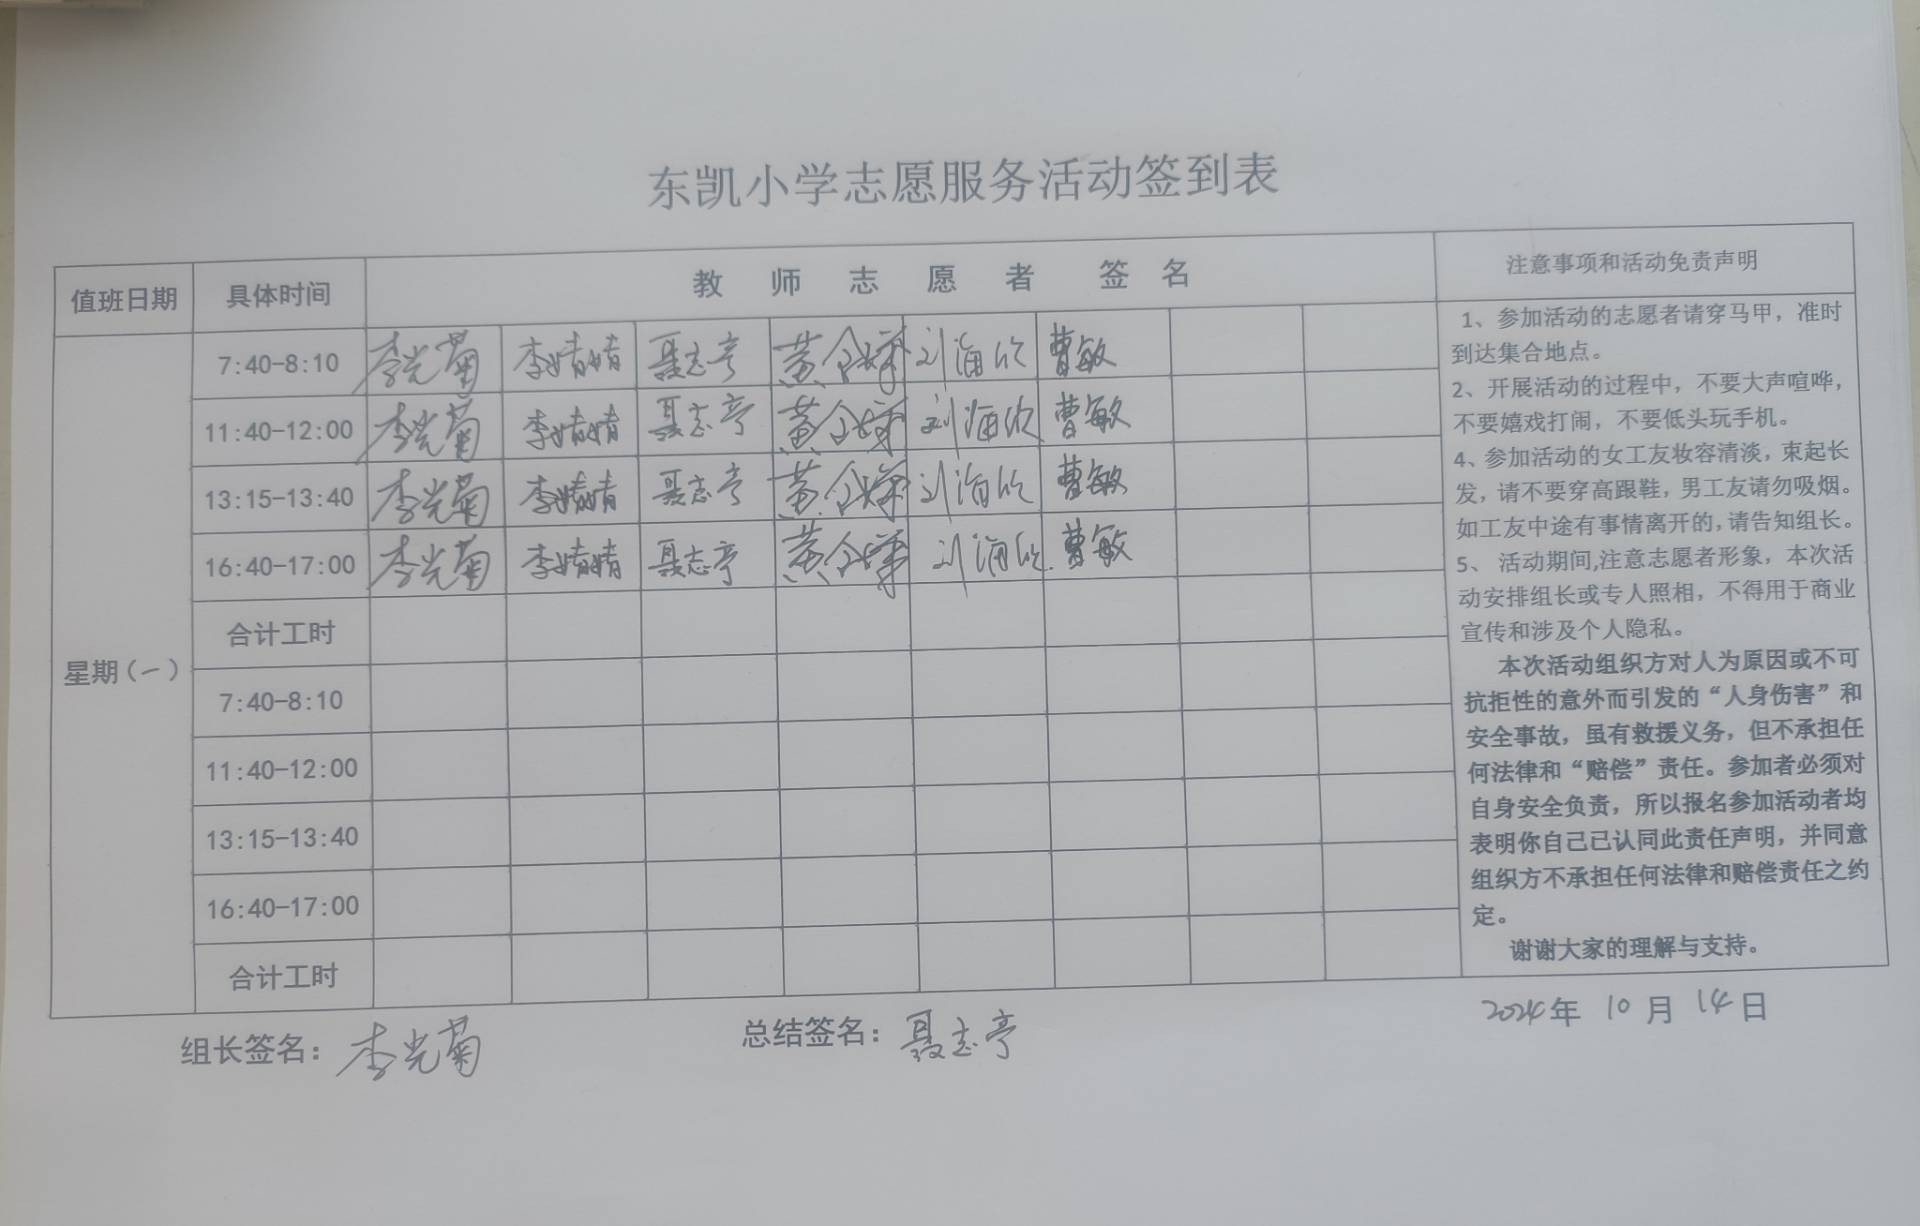 东凯小学志愿服务活动签到表
值班日期 具体时间 教师志愿者 签名 注意事项和活动免责声明
星期(一)
7:40-8:10 李光菊 李婧婧 聂志亭 刘海欣 曹敏
11:40-12:00 李光菊 李婧婧 聂志亭 刘海欣 曹敏
13:15-13:40 李光菊 李婧婧 聂志亭 刘海欣 曹敏
16:40-17:00 李光菊 李婧婧 聂志亭 刘海欣 曹敏
合计工时
7:40-8:10
11:40-12:00
13:15-13:40
16:40-17:00
合计工时
1、参加活动的志愿者请穿马甲，准时
到达集合地点。
2、开展活动的过程中，不要大声喧哗，
不要嬉戏打闹，不要低头玩手机。
4、参加活动的女工友妆容清淡，束起长
发，请不要穿高跟鞋，男工友请勿吸烟。
如工友中途有事情离开的,请告知组长。
5、 活动期间,注意志愿者形象，本次活
动安排组长或专人照相，不得用于商业
宣传和涉及个人隐私。
本次活动组织方对人为原因或不可
抗拒性的意外而引发的“人身伤害”和
安全事故，虽有救援义务，但不承担任
何法律和“赔偿”责任。参加者必须对
自身安全负责，所以报名参加活动者均
表明你自己已认同此责任声明，并同意
组织方不承担任何法律和赔偿责任之约
定。
谢谢大家的理解与支持。
组长签名：李光菊 总结签名：聂志亭 2024年 10月 14日